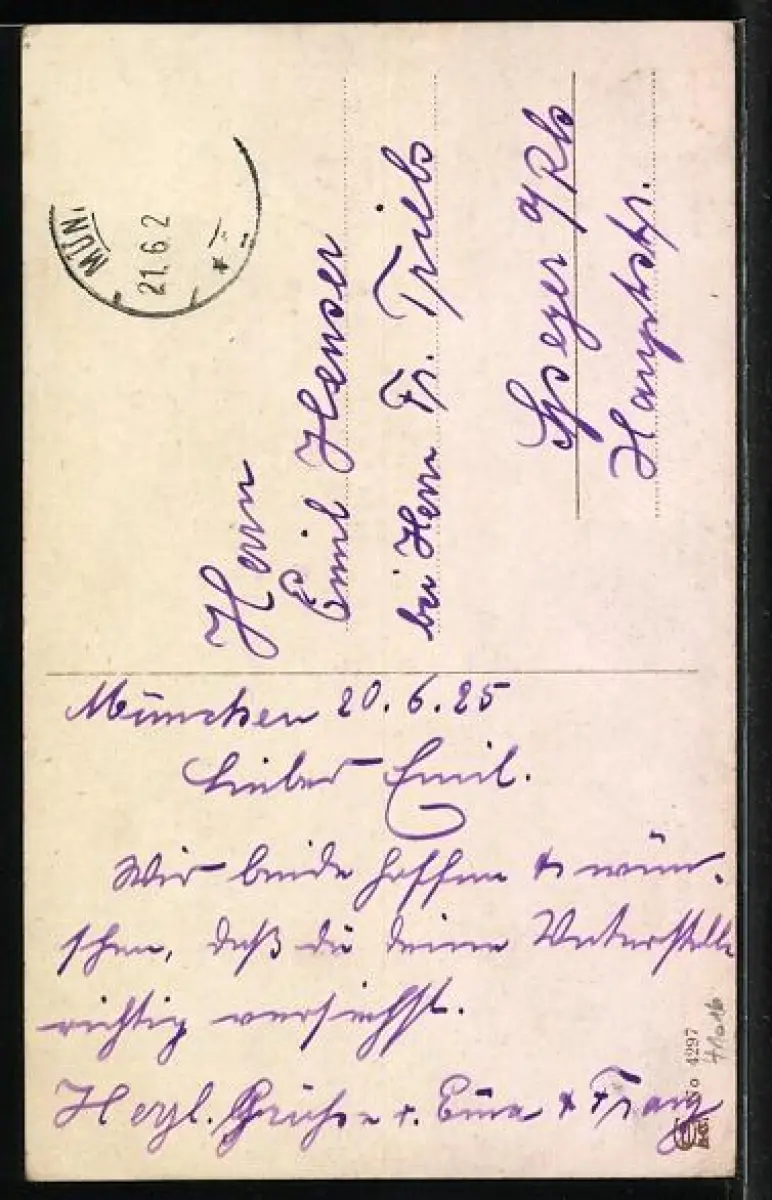 MÜN.
21.6.2
Herrn
Emil Henser
bei Herrn Fr.
Speyer a/Rh
Hauptstr.
München 20.6.25
Lieber Emil.
Wir beide hoffen & wün-
schen, daß du deine Vaterstelle
richtig versiehst.
Herzl. Grüße v. & Franz
No 4297